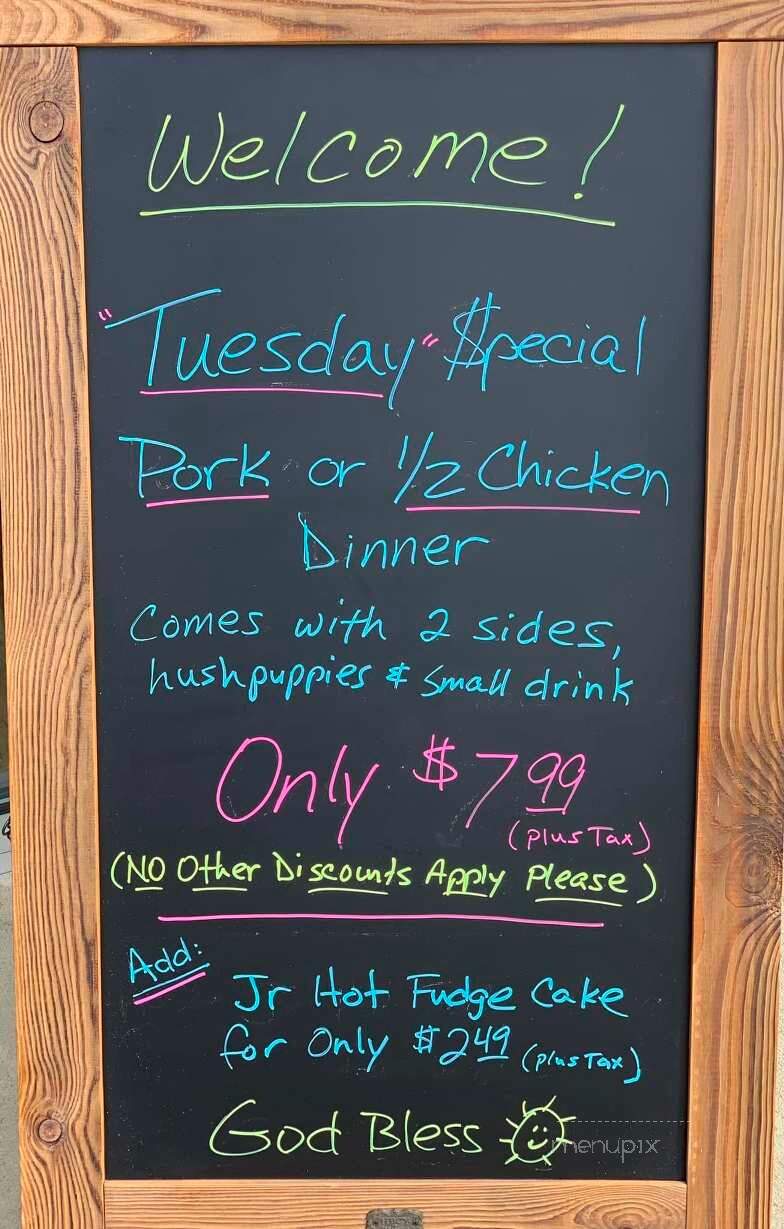 Welcome!
"Tuesday" $pecial
Pork or 1/2 Chicken
Dinner
Comes with 2 sides,
hushpuppies & small drink
Only $7 99
(plus Tax)
(NO Other Discounts Apply Please)
Add:
Jr Hot Fudge Cake
for Only $2 49 (plus Tax)
God Bless
menupix